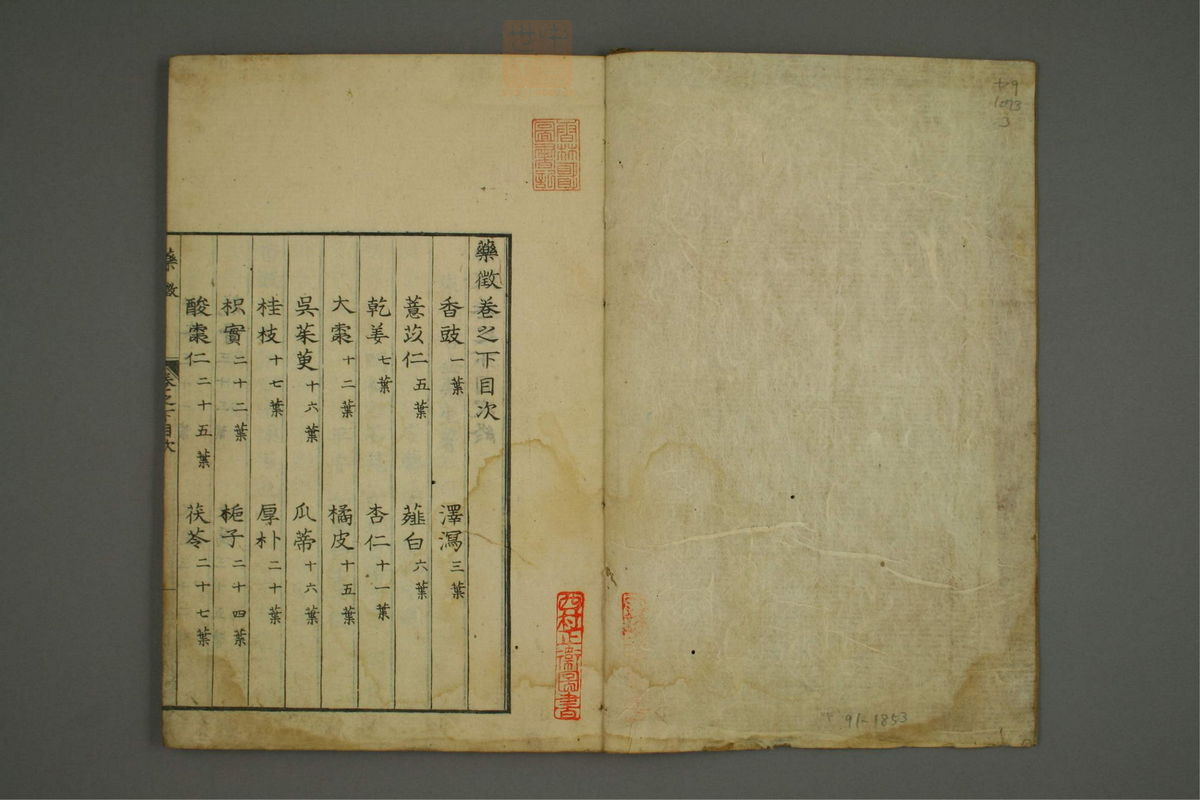 藥徴巻之下目次
香豉一葉 澤瀉三葉
薏苡仁五葉 薤白六葉
乾姜七葉 杏仁十一葉
大棗十二葉 橘皮十五葉
吳茱萸十六葉 瓜蒂十六葉
桂枝十七葉 厚朴二十葉
枳實二十二葉 梔子二十四葉
酸棗仁二十五葉 茯苓二十七葉
藥徴 巻之下目次
西村正衛図書
91-1853